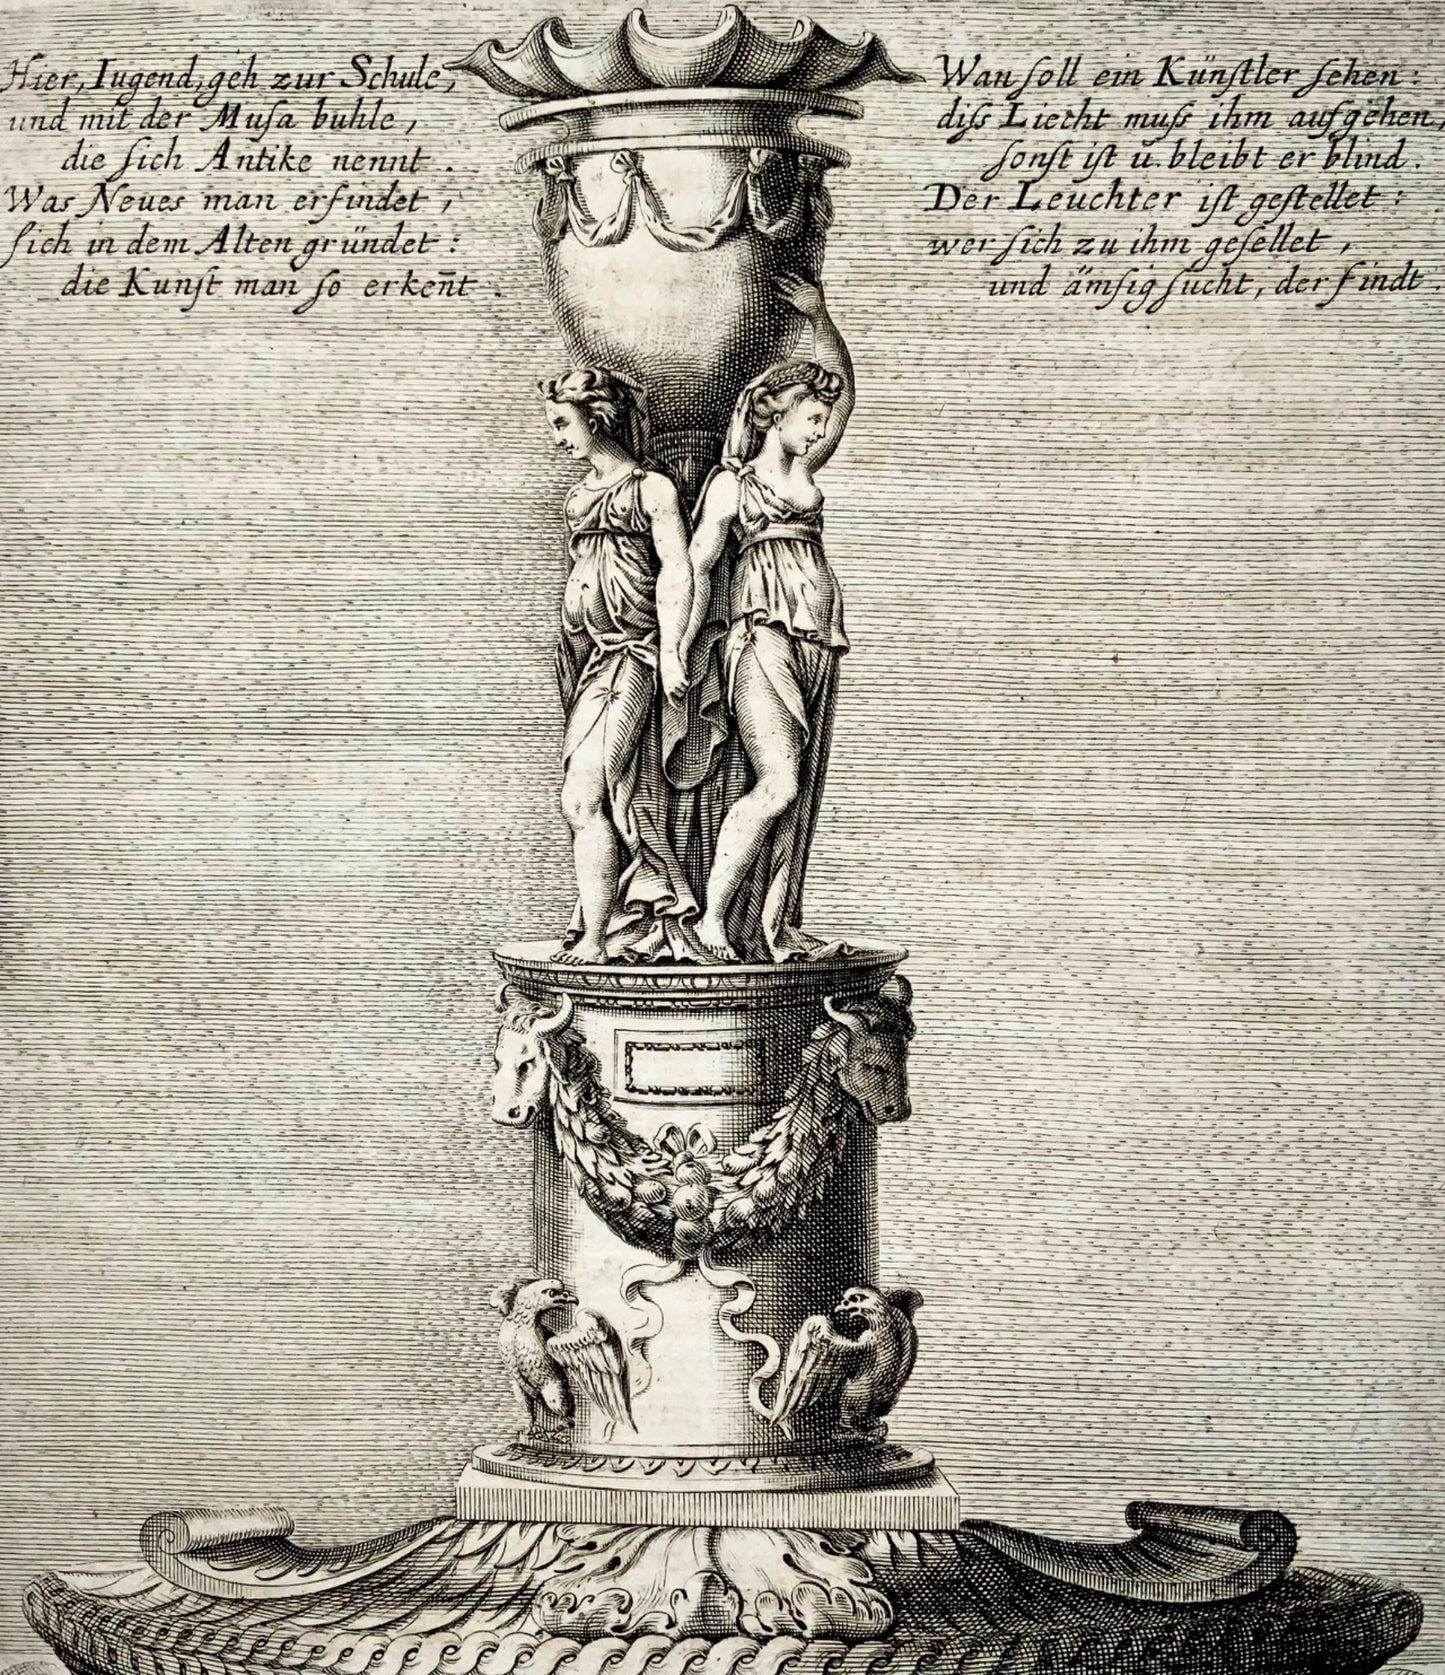 Hier, Iugend, geh zur Schule,
und mit der Muſa buhle,
die ſich Antike nennt.
Was Neues man erfindet,
ſich in dem Alten gründet:
die Kunſt man ſo erken̄t.
Wan ſoll ein Künſtler ſehen:
diſs Liecht muſs ihm aufgehen,
ſonſt iſt ū. bleibt er blind.
Der Leuchter iſt geſtellet:
wer ſich zu ihm geſellet,
und ämſig ſucht, der findt.